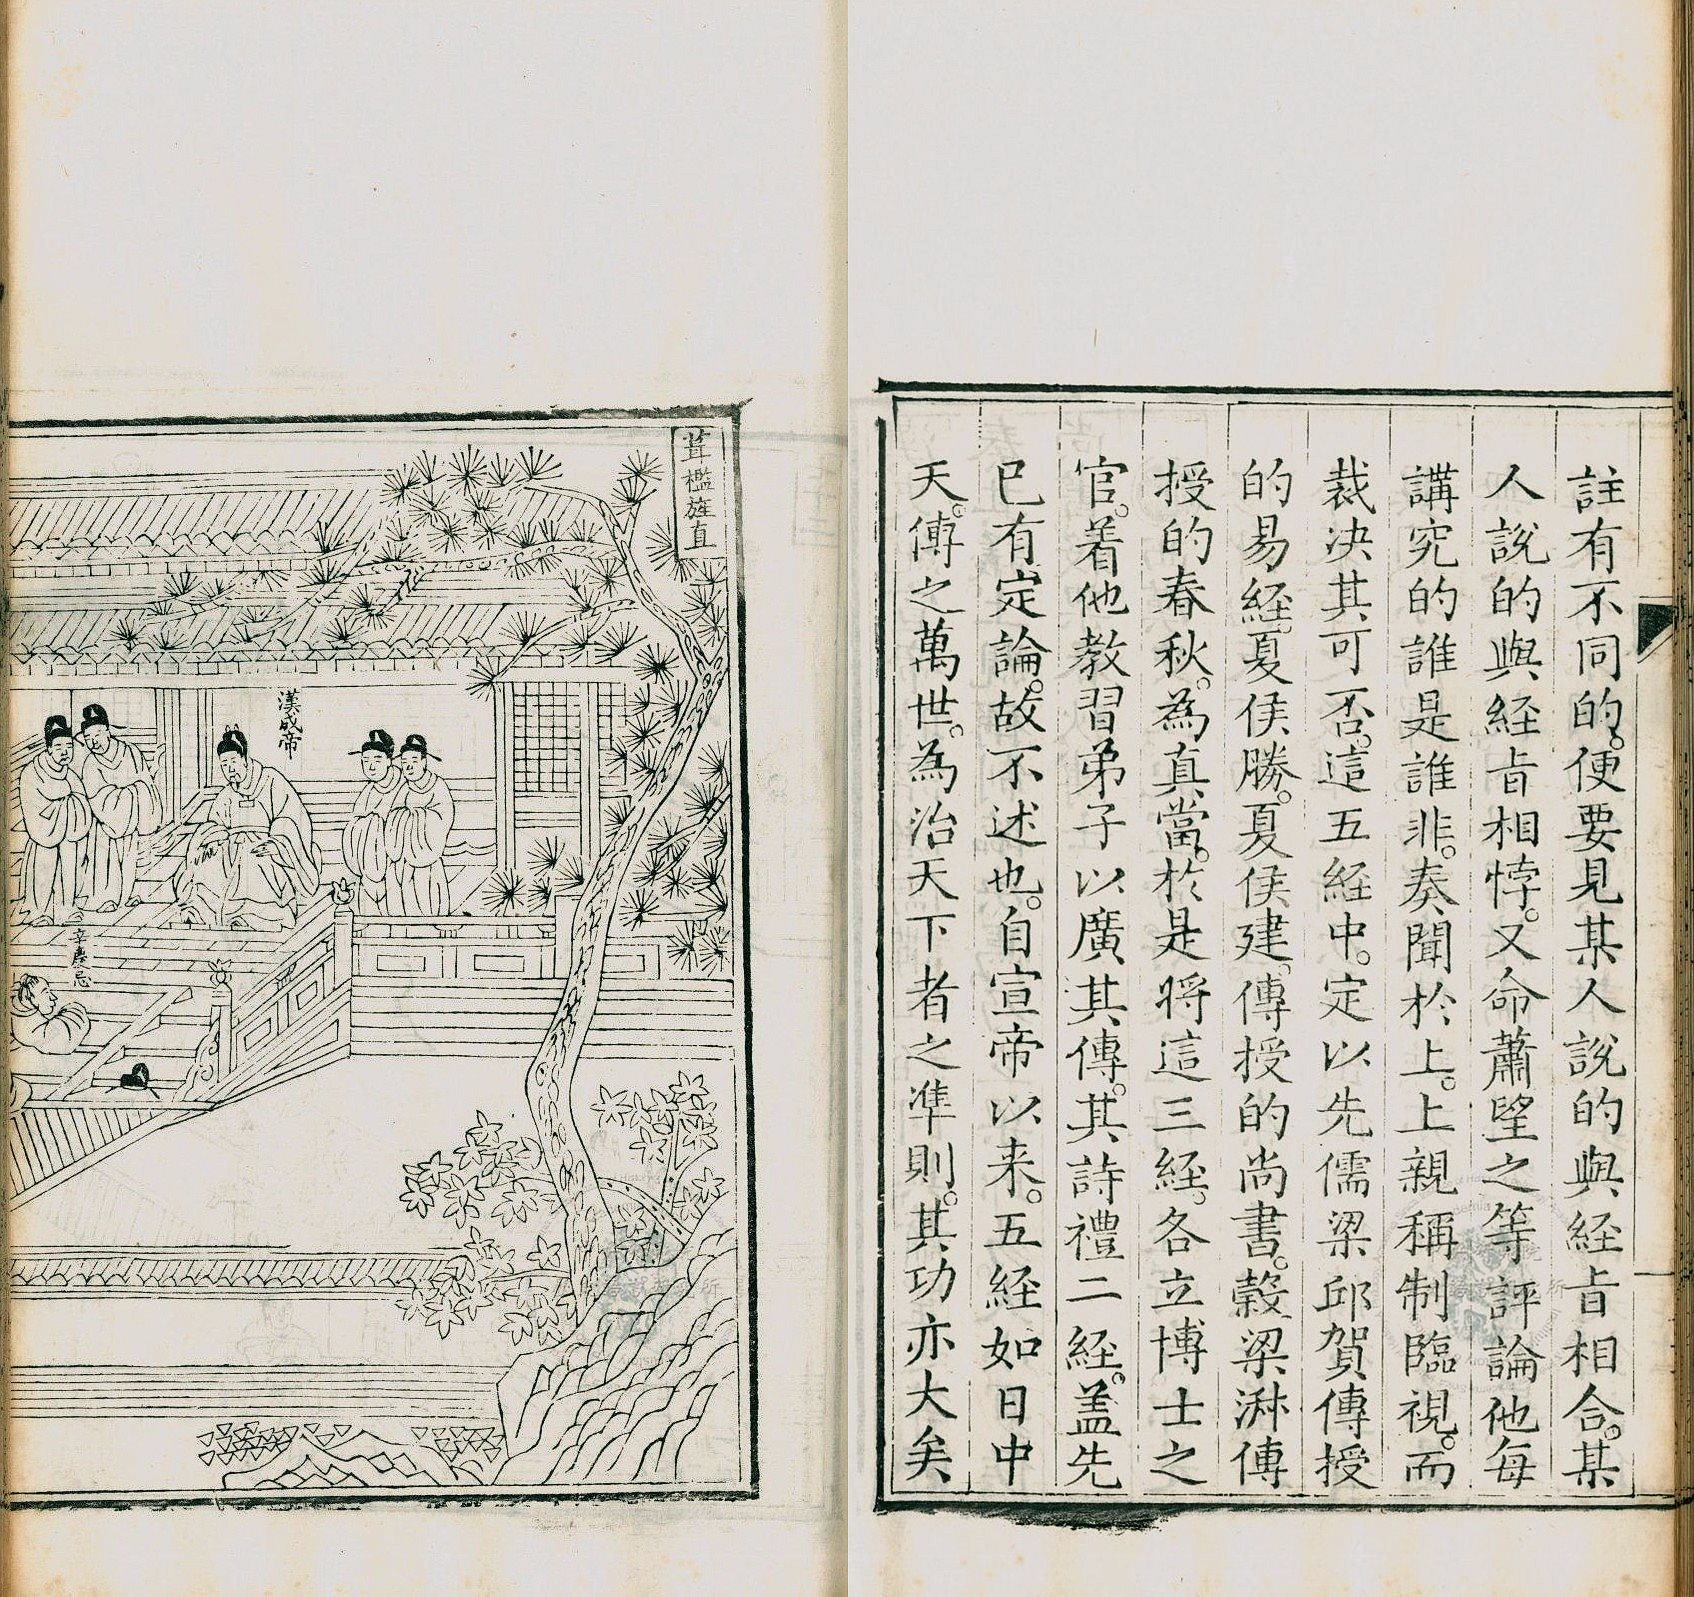 註有不同的。便要見某人說的與經㫖相合。某
人說的與經㫖相悖。又命蕭望之等評論他每
講究的誰是誰非。奏聞於上。上親稱制臨視。而
裁決其可否。這五經中。定以先儒梁邱賀傳授
的易經。夏侯勝。夏侯建。傳授的尚書。穀梁淑傳
授的春秋。為真當。於是將這三經。各立博士之
官。着他教習弟子以廣其傳。其詩禮二經。盖先
已有定論。故不述也。自宣帝以来。五經如日中
天。傳之萬世。為治天下者之準則。其功亦大矣
葺檻旌直
漢成帝
辛慶忌